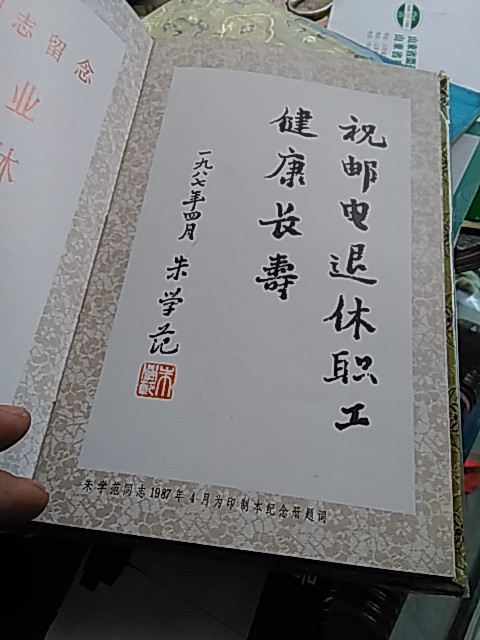 同志留念
业
休
祝邮电退休职工
健康长寿
一九八七年四月
朱学范
朱学范同志1987年4月为印制本纪念册题词
山东省
山東省